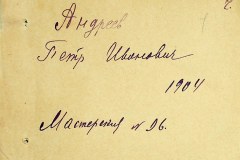 Андреев
Петр Иванович
1904
Мастерская № 26.